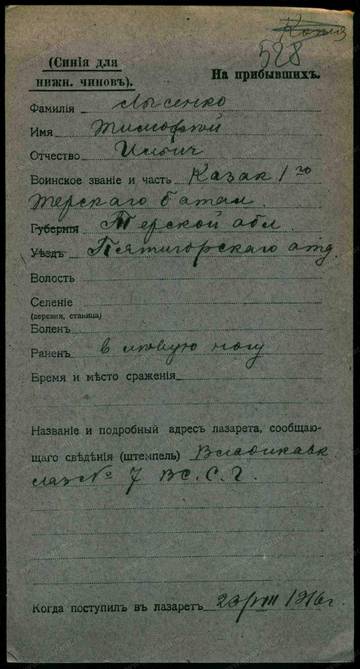 Копія
528
(Синія для
нижн. чиновъ).
На прибывшихъ.
Фамилія Лысенко
Имя Тимофѣй
Отчество Ильич
Воинское званіе и часть Казак 1го
Терскаго батал
Губернія Терской обл
Уѣздъ Пятигорскаго отд.
Волость
Селеніе
(деревня, станица)
Боленъ
Раненъ в лѣвую ногу
Время и мѣсто сраженія
Названіе и подробный адресъ лазарета, сообщаю-
щаго свѣдѣнія (штемпель) Владикавк
лаз № 7 В.С.Г.
Когда поступилъ въ лазаретъ 1916 г.